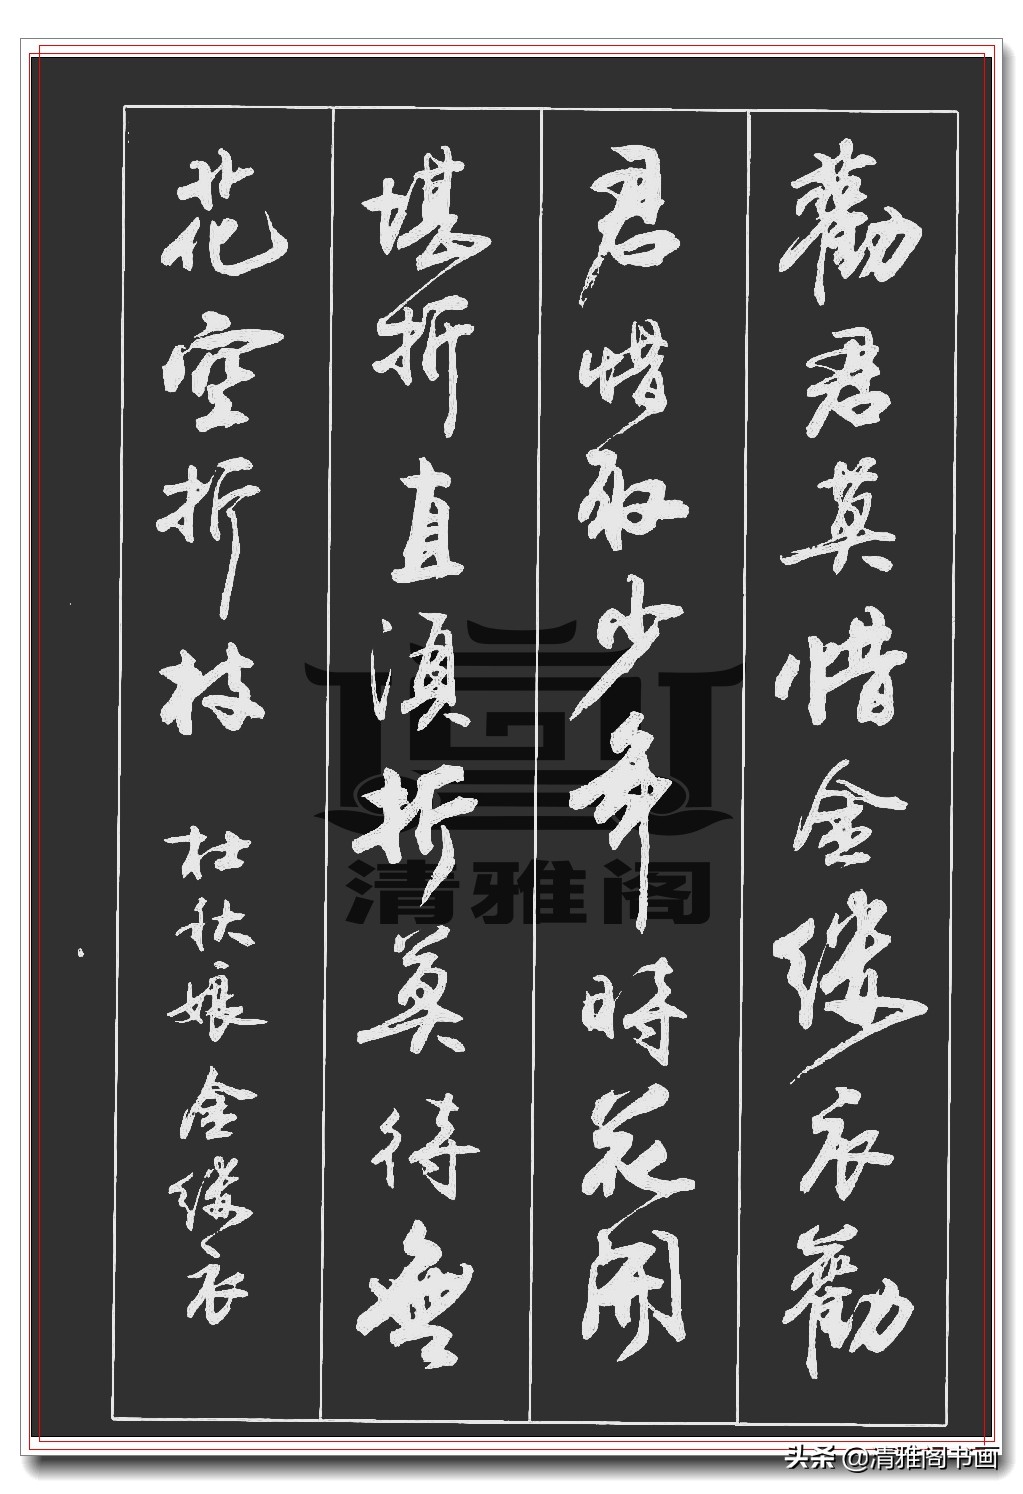 勸君莫惜金縷衣勸
君惜取少年時花開
堪折直須折莫待無
花空折枝 杜秋娘 金縷衣
清雅阁
头条 @清雅阁书画